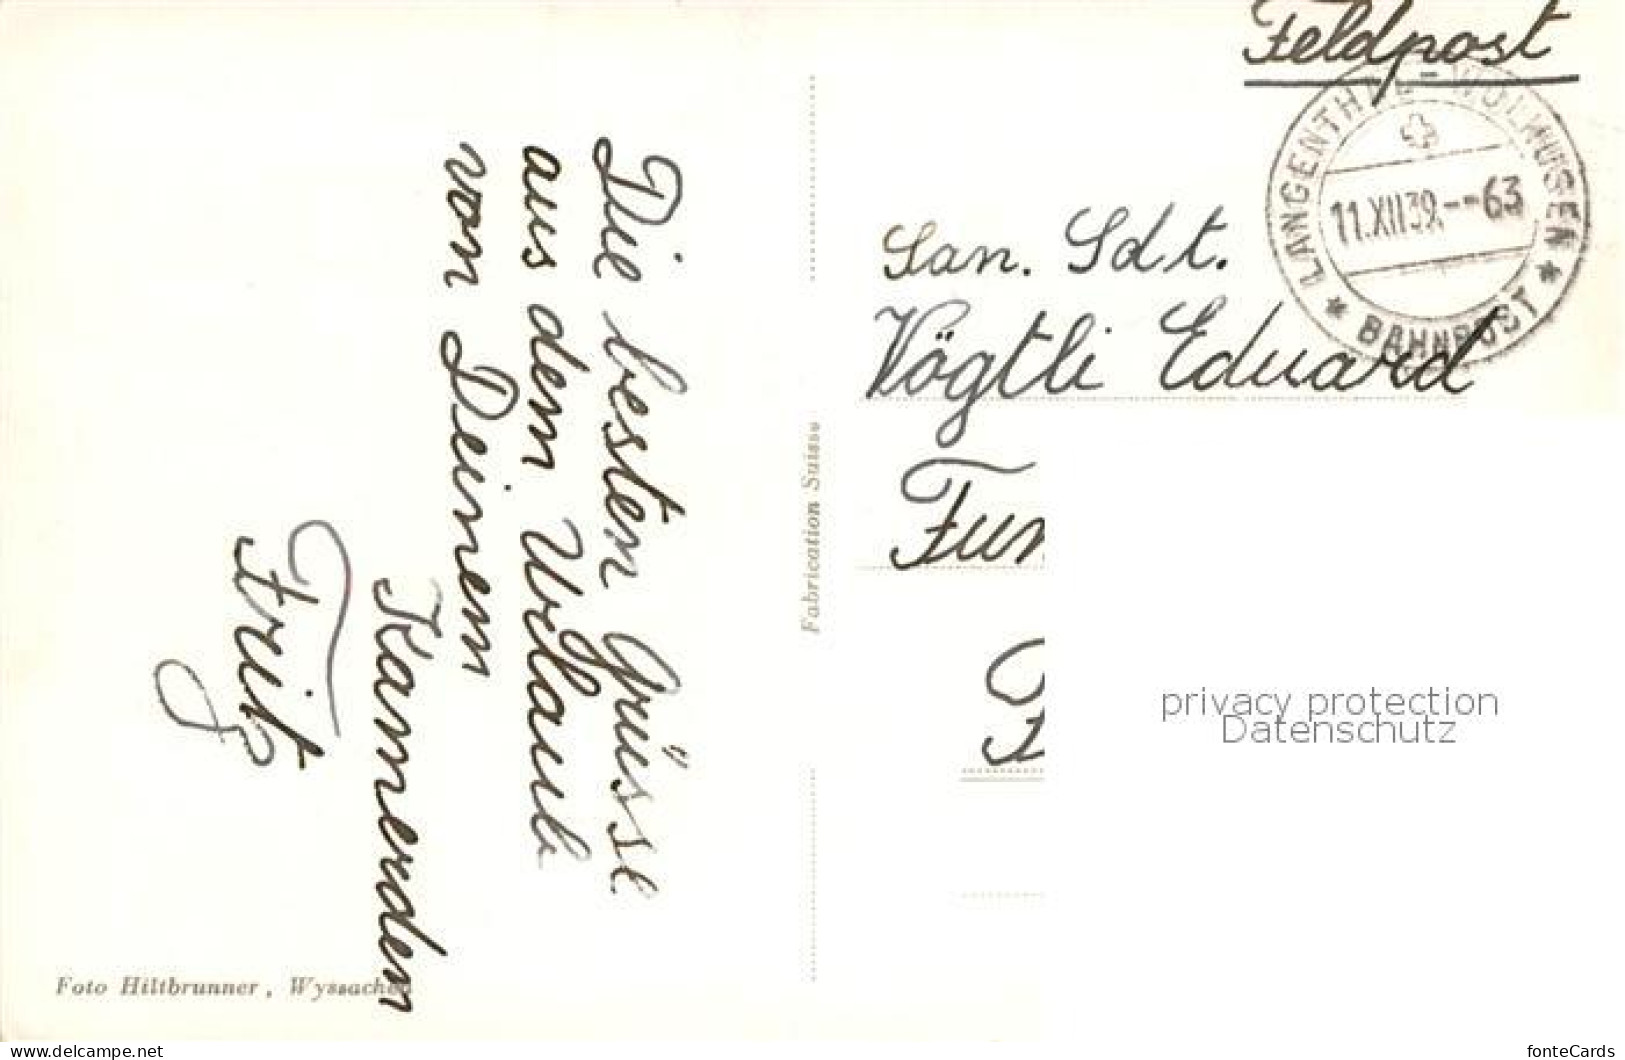 Feldpost
LANGENTHAL-WOLHUSEN
11.XII39.--63
* BAHNPOST *
San. Sdt.
Vögtli Eduard
Die besten Grüsse
aus dem Urlaub
von Deinem
Kameraden
Fritz
Fabrication Suisse
Foto Hiltbrunner, Wyssachen
privacy protection
Datenschutz
www.delcampe.net
fonteCards